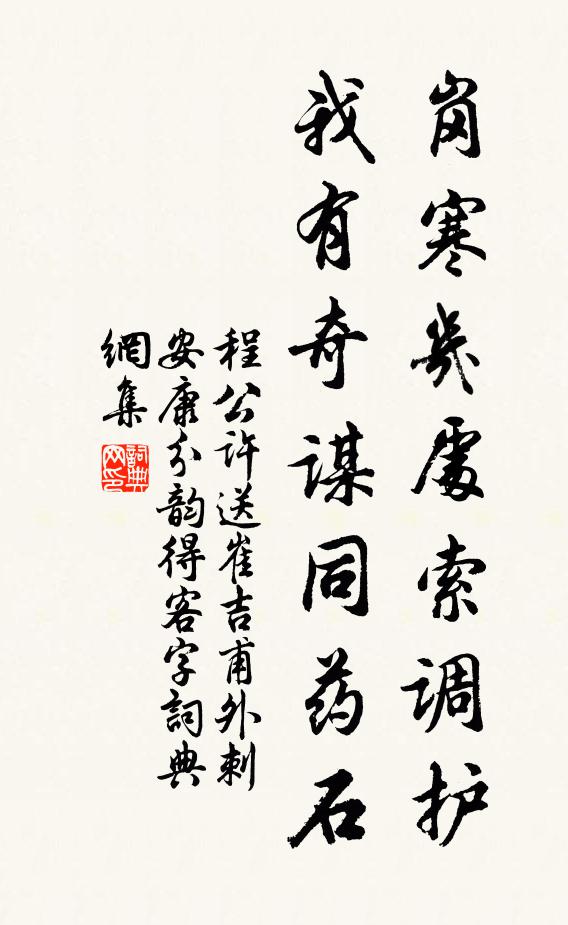 岗寒幾處索调护
我有奇谋同药石
程公许送崔吉甫外刺
安康分韵得客字詞典
網集
詞典
网印